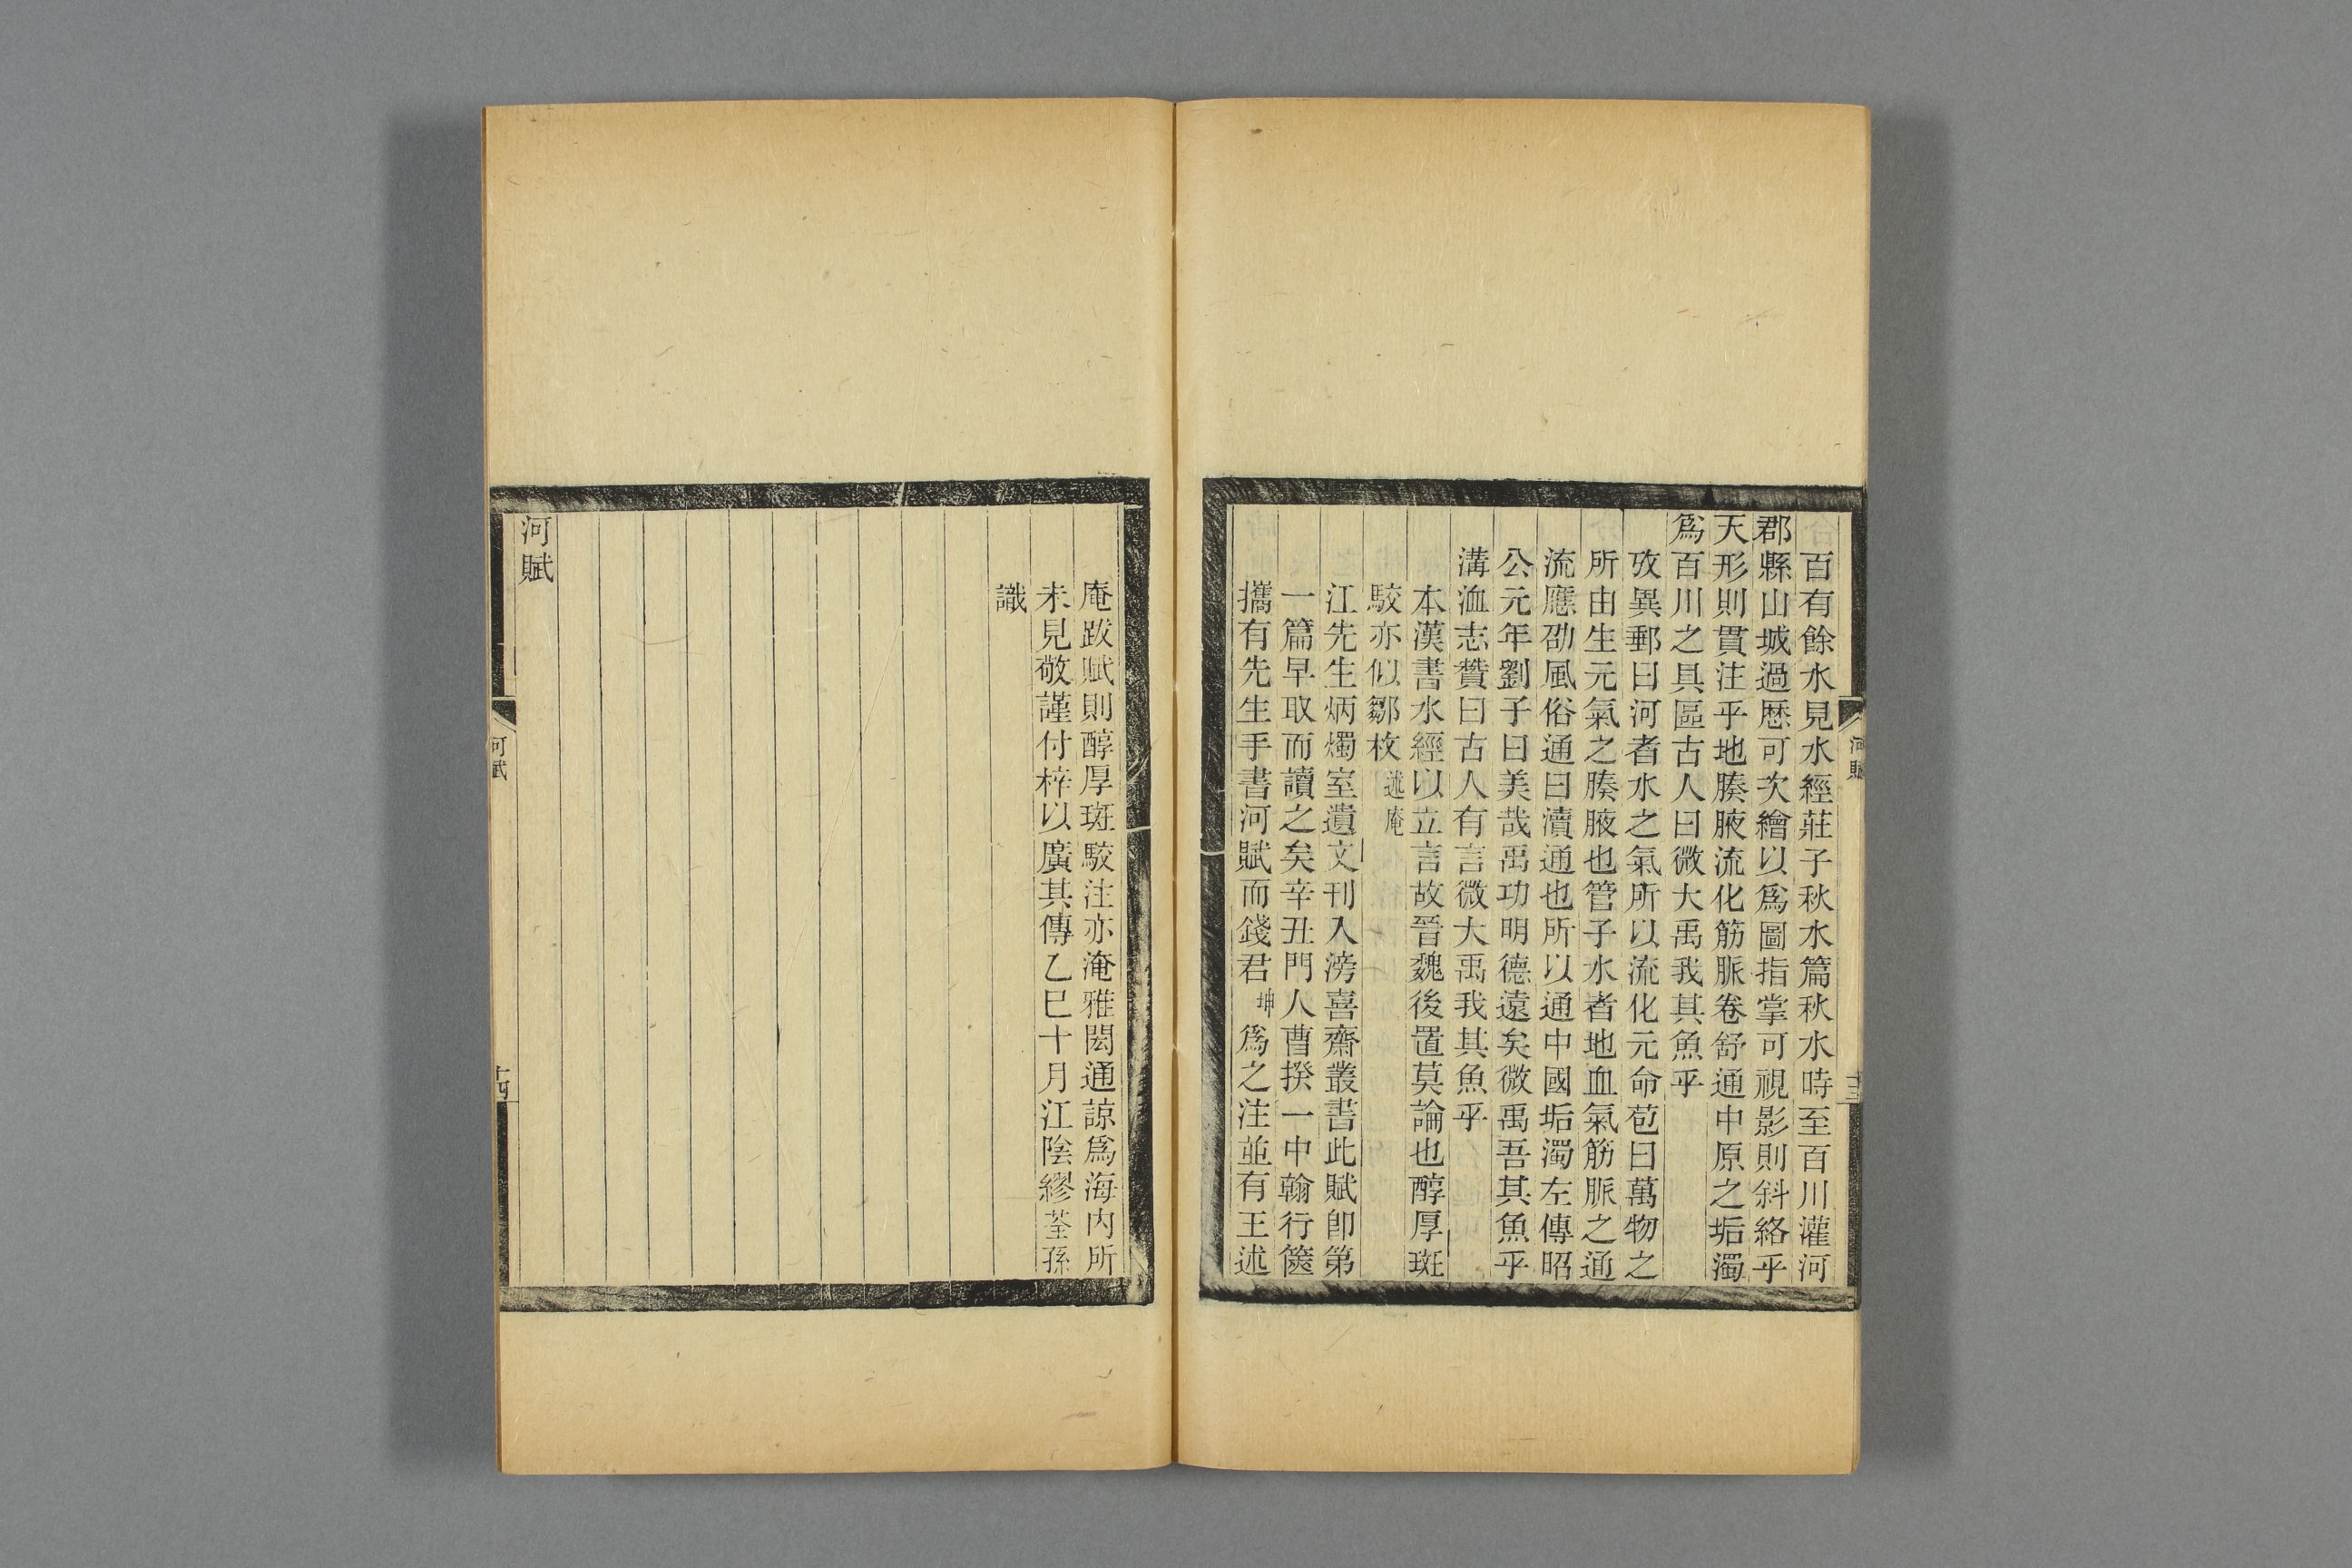 百有餘水見水經莊子秋水篇秋水時至百川灌河
郡縣山城過歷可次繪以爲圖指掌可視影則斜絡乎
天形則貫注乎地腠腋流化筋脈卷舒通中原之垢濁
爲百川之具區古人曰微大禹我其魚乎
攷異郵曰河者水之氣所以流化元命苞曰萬物之
所由生元氣之腠腋也管子水者地血氣筋脈之通
流應劭風俗通曰瀆通也所以通中國垢濁左傳昭
公元年劉子曰美哉禹功明德遠矣微禹吾其魚乎
溝洫志贊曰古人有言微大禹我其魚乎
本漢書水經以立言故晉魏後置莫論也醇厚斑
駮亦似鄒枚述庵
江先生炳燭室遺文刊入滂喜齋叢書此賦卽第
一篇早取而讀之矣辛丑門人曹揆一中翰行篋
攜有先生手書河賦而錢君坤爲之注並有王述
河賦
十三
庵跋賦則醇厚斑駮注亦淹雅閎通諒爲海内所
未見敬謹付梓以廣其傳乙巳十月江陰繆荃孫
識
河賦
河賦
十四